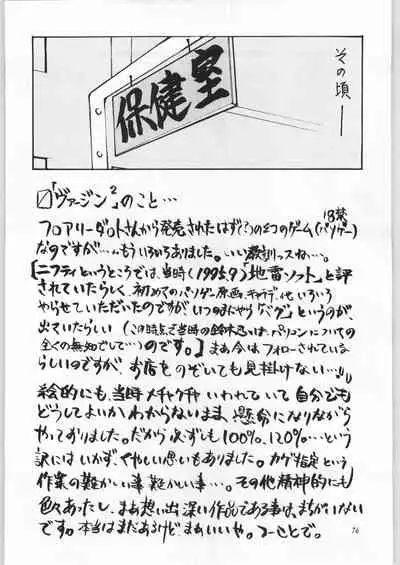 その頃――
保健室
「ヴァージン²」のこと…
フロアリーダットさんから発売されたはず(?)の2つのゲーム(18禁パソゲー)
なのですが…もういろいろありました。いい教訓っスね…。
【ニフティというところでは、当時(1995.9)「地雷ソフト」と評
されていたらしく、初めてのパソゲー原画、キャラデ、他いろいろ
やらせていただいたのですがいつのまにやら「バグ」というのが、
出ていたらしい(この時点で当時の鈴木は、パソコンについての
全くの無知でして…)のです。】まあ今はフォローされている
らしいのですが、お店をのぞいても見掛けない…。
絵的にも、当時メチャクチャいわれていて自分でも
どうしてよいかわからないまま、懸命になりながら
やっておりました。だから必ずしも100%、120%…という
訳にはいかず、くやしい思いもありました。カゲ指定という
作業の難かしい事難かしい事…。その他精神的にも
色々あったし、まあ想い出深い作品である事は、まちがいない
です。本当はまだあるけど、まあ、いいや。つーことで。